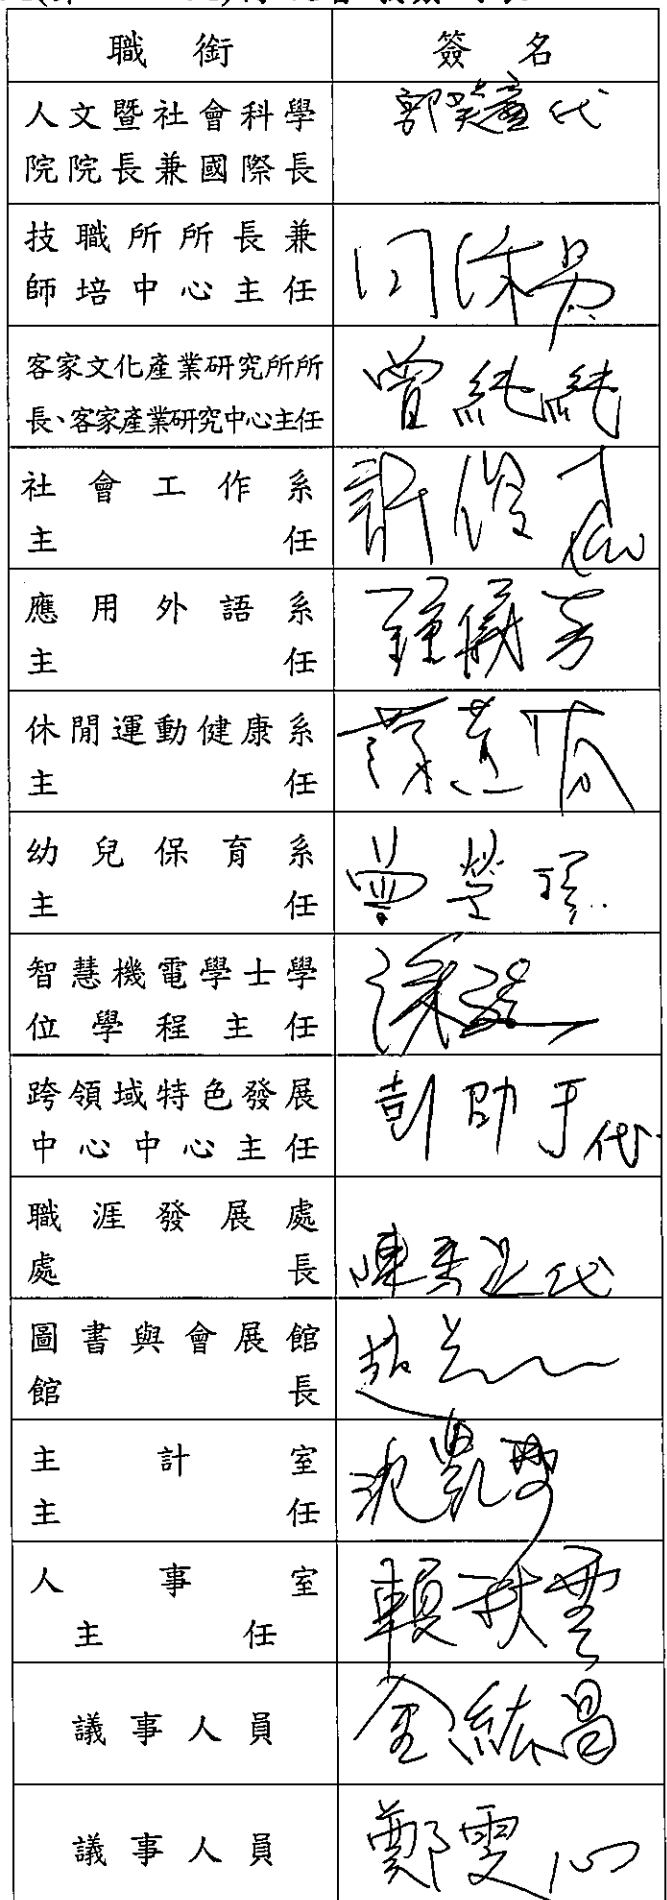 職銜 簽名
人文暨社會科學
院院長兼國際長
代
技職所所長兼
師培中心主任
客家文化產業研究所所
長、客家產業研究中心主任
曾純純
社會工作系
主任
許俊
應用外語系
主任
鍾儀芳
休閒運動健康系
主任
幼兒保育系
主任
曾瑩
智慧機電學士學
位學程主任
跨領域特色發展
中心中心主任
代
職涯發展處
處長
陳 代
圖書與會展館
館長
趙
主計室
主任
沈凱
人事室
主任
賴秋雲
議事人員
金紘昌
議事人員
鄭雯心